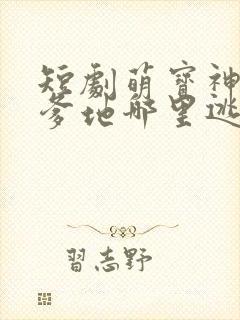 短劇萌寶神
爹地哪里逃
習志野